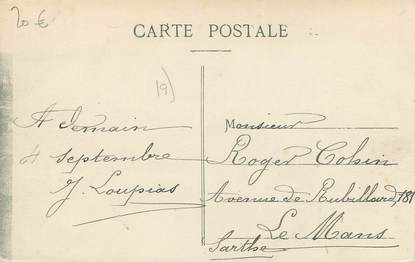 20 €
CARTE POSTALE
19)
A demain
4 septembre
J. Loupias
Monsieur
Roger Cohin
Avenue de Rubillard, 181
Le Mans
Sarthe